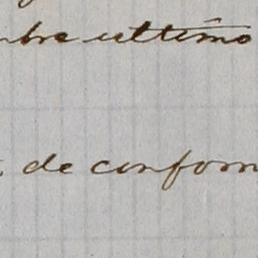 mbre ultimo
de conform